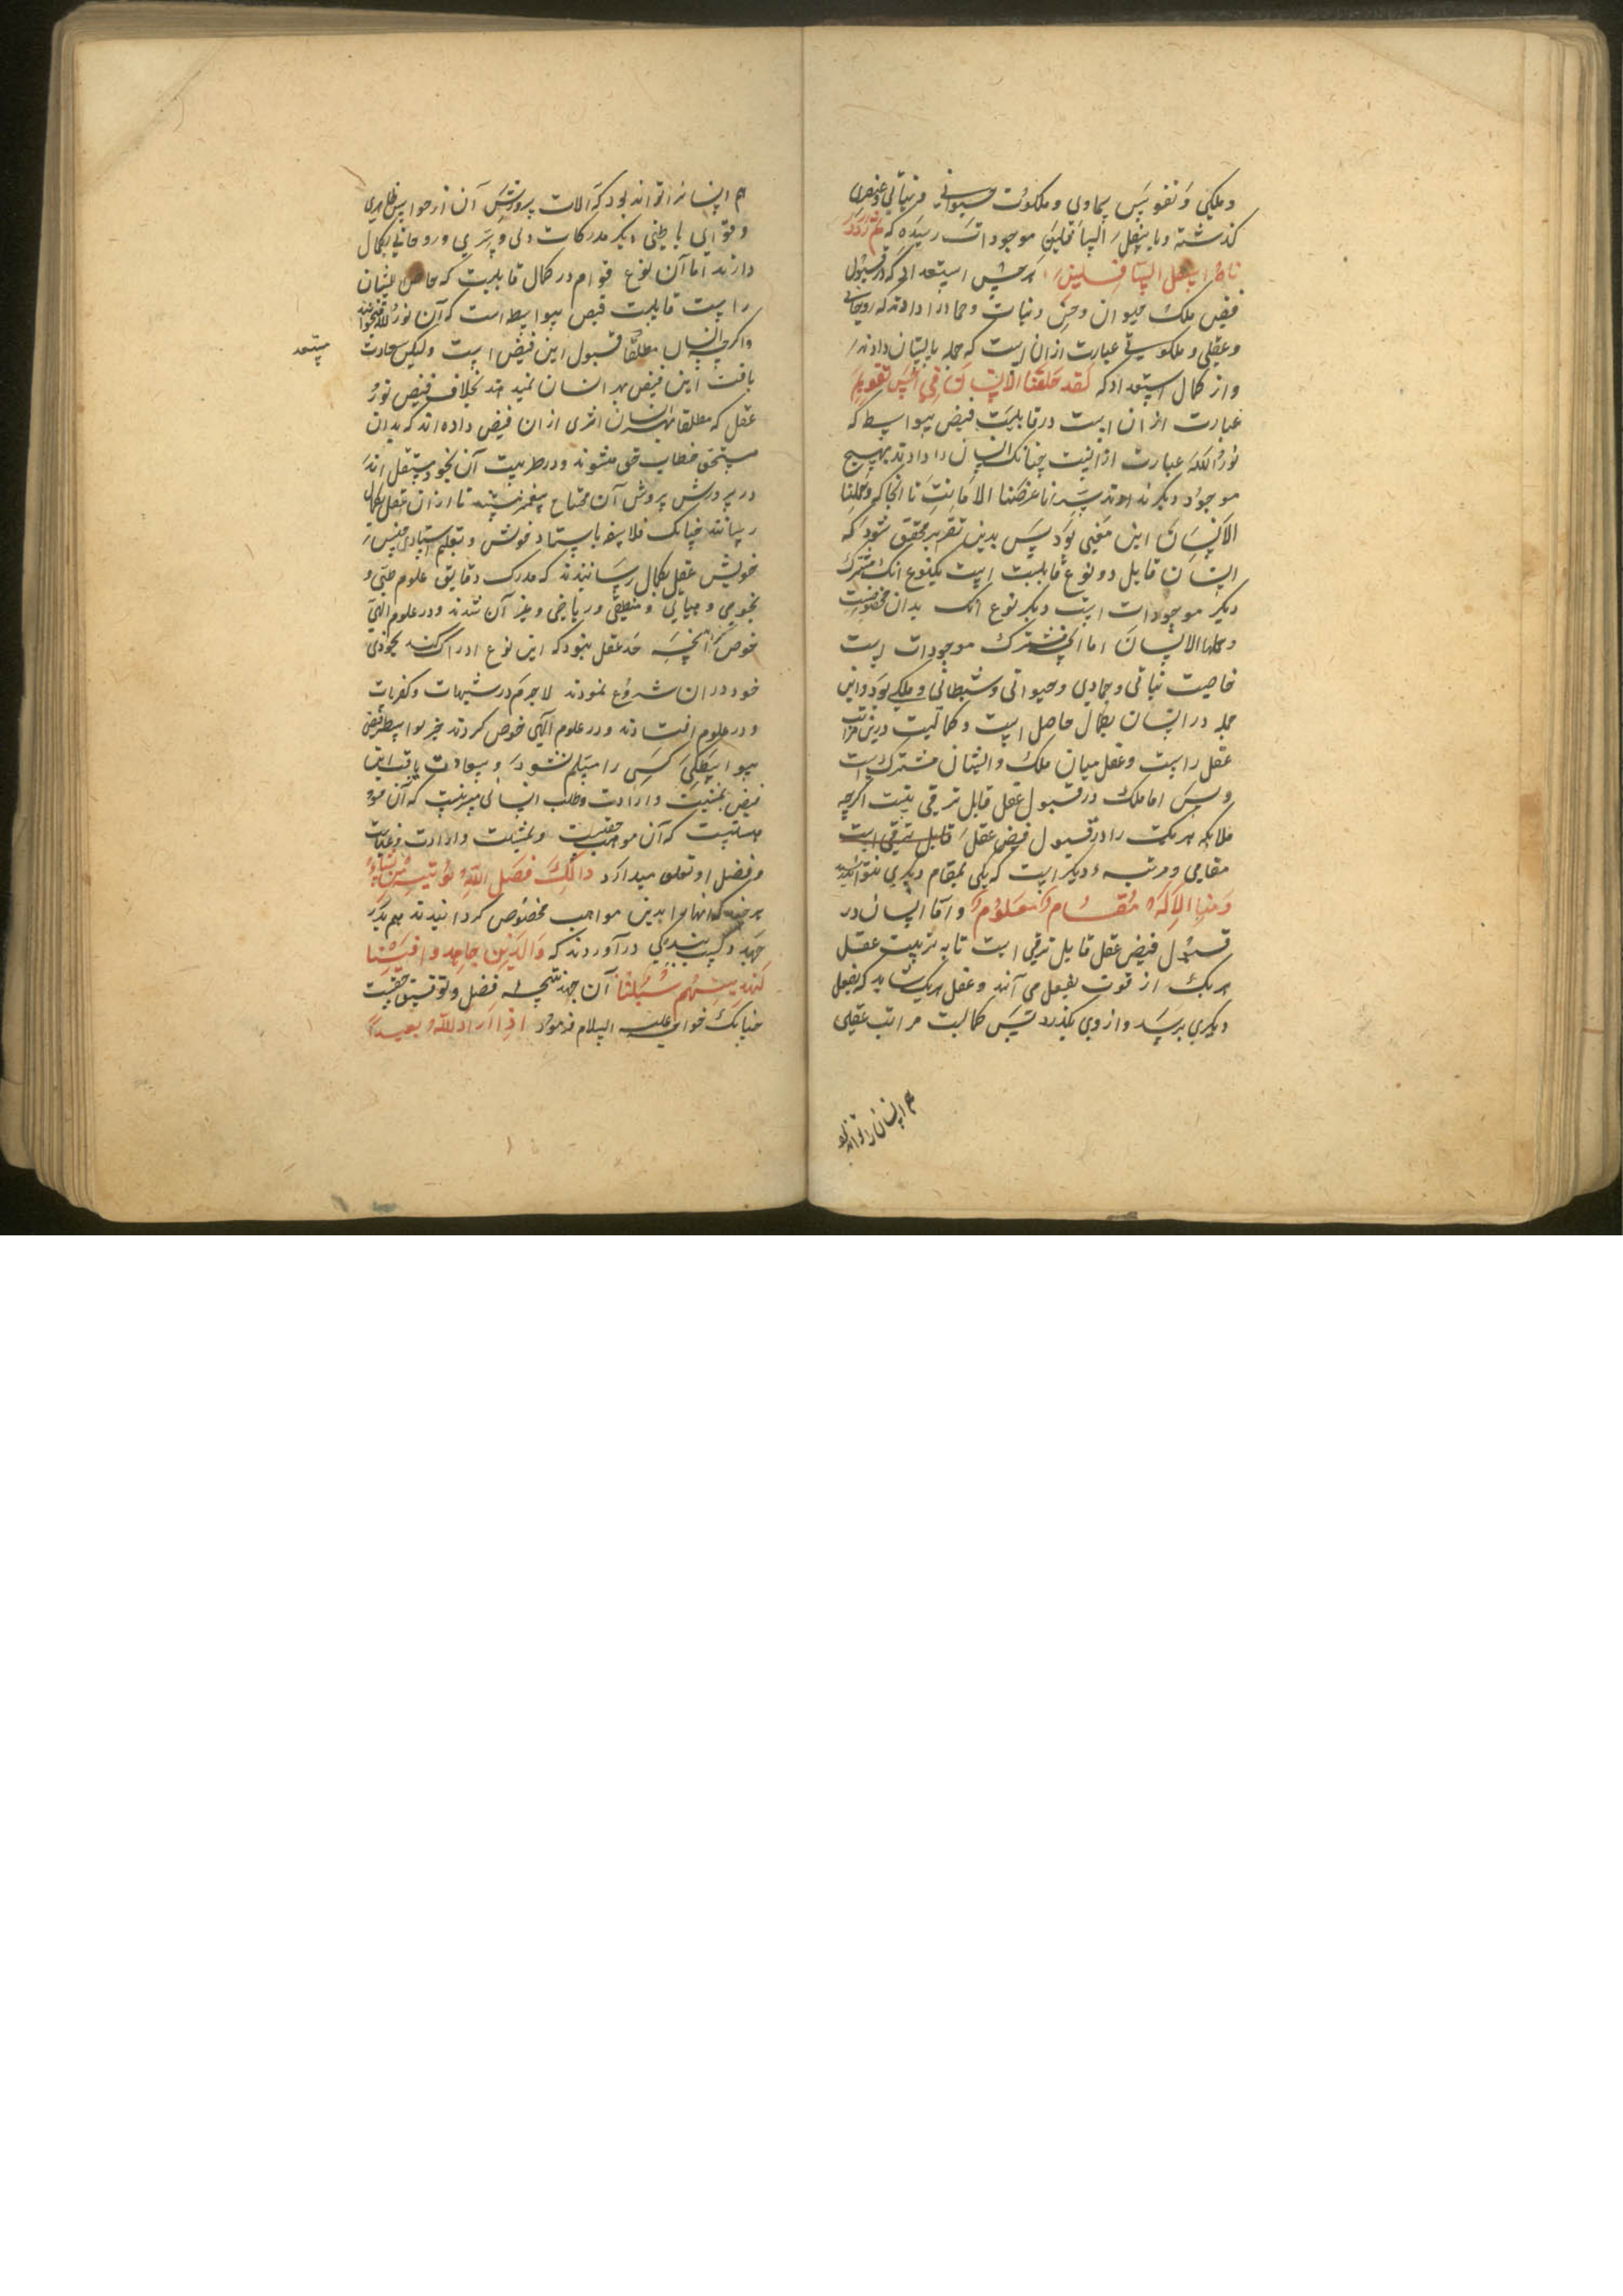 و ملکی و نفوس سماوی و ملکوت حیوانی و نباتی و عنصری
گذشته و باسفل السافلین موجودات رسیده که ثم رددـ
ناه اسفل السافلین هر جنس استعدادی که در قبول
فیض ملک حیوان و جن و نبات و جماد را دادند که روحانی
و عقلی و ملکوتی عبارت از ان است که جمله بانسان دادند
و از کمال استعداد که لقد خلقنا الانسان فی احسن تقویم
عبارت از ان است در قابلیت فیض بیواسطه که
نور الله عبارت ازانست چنانک انسان را دادند بهیچ
موجود دیگر ندادند سر انا عرضنا الامانت تا انجا که و حملها
الانسان این معنی بود پس بدین تقریر محقق شود که
انسان قابل دو نوع قابلیت است یکنوع انک مشترک
دیگر موجودات است دیگر نوع انک بدان مخصوصست
و حملها الانسان اما انچ مشترک موجودات است
خاصیت نباتی و جمادی و حیوانی و شیطانی و ملکی بود و این
جمله در انسان بکمال حاصل است و کمالیت درین مراتب
عقل راست و عقل میان ملک و انسان مشترک است
و بس اما ملک در قبول عقل قابل ترقی نیست اگرچه
ملایکه هر یک را در قبول فیض عقل قابل ترقی است
مقامی و مرتبه دیگر است که یکی بمقام دیگری نتواند رسید
و منا الا له مقام معلوم و اما انسان در
قبول فیض عقل قابل ترقی است تا به تربیت عقل
هر یک از قوت بفعل می آید و عقل هر یک شاید که بفعل
دیگری برسد و از وی بگذرد پس کمالیت مراتب عقلی
هم انسان را تواند بود
هم انسان را تواند بود که الات پرورش آن از حواس ظاهری
و قوای باطنی دیگر مدرکات دلی و سری و روحانی بکمال
دارند اما آن نوع قوام در کمال قابلیت که خاص انسان
راست قابلیت فیض بیواسطه است که آن نور الله میخوانند
و اگرچه انسان مطلقا قبول این فیض است ولیکن سعادت
مستعد
یافت این فیض بهر انسان نمیدهند بخلاف فیض نور
عقل که مطلقا هر انسان اثری از ان فیض داده اند که بدان
مستحق خطاب حق میشوند و در طربیت آن بخود مستقل اند
در پرورش پروش آن محتاج پیغمبر نیستند تا از ان عقل بکمال
رسانند چنانک فلاسفه باستاد خوش و بتعلیم استادی جنس
خویش عقل بکمال رسانیدند که مدرک دقایق علوم طبی و
نجومی و حسابی و منطقی و ریاضی و غیر آن شدند و در علوم الهی
خوض انچه حد عقل نبود که این نوع ادراک کند بخودی
خود در ان شروع نمودند لاجرم در شبهات و کفریات
و در علوم افتادند و در علوم الهی خوض کردند
بیواسطگی کسی را مسلم نشود و سعادت یافت این
فیض بمشیت و ارادت و طلب انسانی میسر نیست که آن
موهبتیست که آن مواهب حقیست و بمشیت و ارادت و عنایت
و فضل او تعلق میدارد ذالک فضل الله یوتیه من یشاء
هر چند که انها را بدین مواهب مخصوص گردانیدند هم بدر
جهد و کسب بندگی درآوردند که والذین جاهدوا فینا
لنهدینهم سبلنا آن جهد نتیجه فضل و توفیق حقیست
چنانک خواجه علیه السلام فرمود اذا اراد الله بعبد